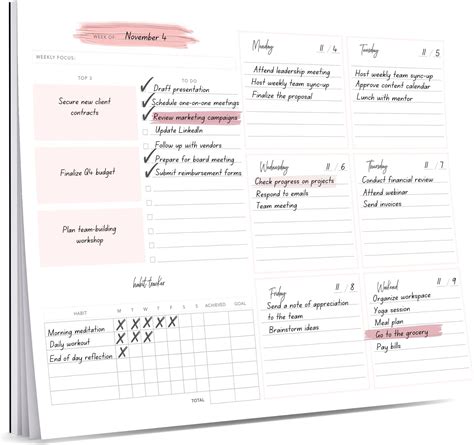 WEEK OF: November 4
WEEKLY FOCUS:
TOP 3
Secure new client
contracts
Finalize Q4 budget
Plan team-building
workshop
TO DO
Draft presentation
Schedule one-on-one meetings
Review marketing campaigns
Update LinkedIn
Follow up with vendors
Prepare for board meeting
Submit reimbursement forms
habit tracker
HABIT M T W T F S S ACHIEVED GOAL
Morning meditation X X X X
Daily workout X X X
End of day reflection X
TOTAL
Monday 11 / 4
Attend leadership meeting
Host weekly team sync-up
Finalize the proposal
Tuesday 11 / 5
Host weekly team sync-up
Approve content calendar
Lunch with mentor
Wednesday 11 / 6
Check progress on projects
Respond to emails
Team meeting
Thursday 11 / 7
Conduct financial review
Attend webinar
Send invoices
Friday 11 / 8
Send a note of appreciation
to the team
Brainstorm ideas
Weekend 11 / 9
Organize workspace
Yoga session
Meal plan
Go to the grocery
Pay bills